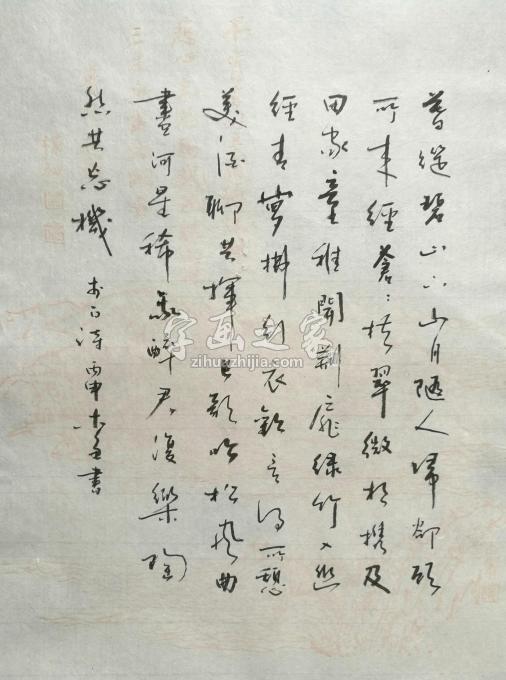 暮從碧山下山月隨人歸卻顧
所來經蒼蒼橫翠微相攜及
田家童稚開荊扉綠竹入幽
經青蘿拂行衣歡言得所憩
美酒聊共揮長歌吟松風曲
盡河星稀我醉君復樂陶
然共忘機 白詩 書
字画之家
zihuazhijia.com